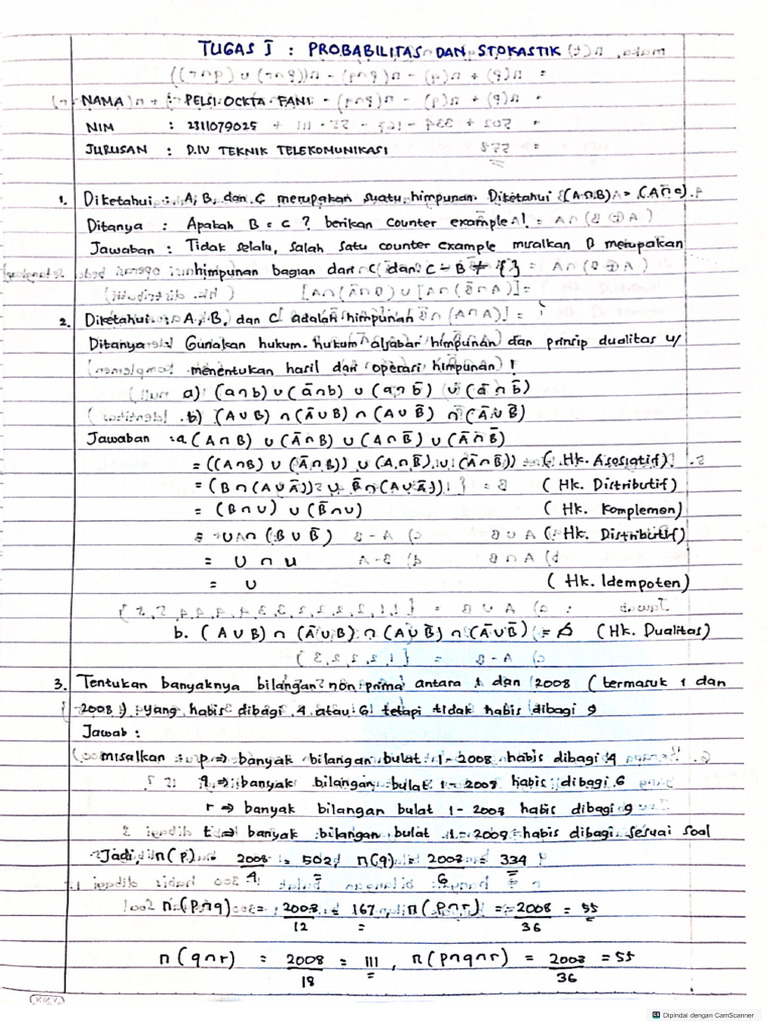 TUGAS I : PROBABILITAS DAN STOKASTIK
NAMA : PELSI OCKTA FANI
NIM : 2311079025
JURUSAN : D.IV TEKNIK TELEKOMUNIKASI
1. Diketahui : A, B, dan C merupakan suatu himpunan. Diketahui (A∩B) = (A∩C).
Ditanya : Apakah B = C ? berikan counter example !
Jawaban : Tidak selalu, salah satu counter example misalkan B merupakan
himpunan bagian dari C dan C - B ≠ { }
2. Diketahui : A, B, dan C adalah himpunan
Ditanya : Gunakan hukum-hukum aljabar himpunan dan prinsip dualitas u/
menentukan hasil dari operasi himpunan !
a) (a∩b) ∪ (ā∩b) ∪ (a∩b̄) ∪ (ā∩b̄)
b) (A∪B) ∩ (Ā∪B) ∩ (A∪B̄) ∩ (Ā∪B̄)
Jawaban : a (A∩B) ∪ (Ā∩B) ∪ (A∩B̄) ∪ (Ā∩B̄)
= ((A∩B) ∪ (Ā∩B)) ∪ (A∩B̄) ∪ (Ā∩B̄)) ( Hk. Asosiatif)
= (B∩(A∪Ā)) ∪ B̄∩(A∪Ā)) ( Hk. Distributif)
= (B∩U) ∪ (B̄∩U) ( Hk. Komplemen)
= U∩ (B∪B̄) ( Hk. Distributif)
= U ∩ U
= U ( Hk. Idempoten)
b. (A∪B) ∩ (Ā∪B) ∩ (A∪B̄) ∩ (Ā∪B̄) = ∅ (Hk. Dualitas)
3. Tentukan banyaknya bilangan non prima antara 1 dan 2008 ( termasuk 1 dan
2008 ) yang habis dibagi 4 atau 6 tetapi tidak habis dibagi 9
Jawab :
misalkan p ⇒ banyak bilangan bulat 1-2008 habis dibagi 4
q ⇒ banyak bilangan bulat 1-2008 habis dibagi 6
r ⇒ banyak bilangan bulat 1-2008 habis dibagi 9
t ⇒ banyak bilangan bulat 1-2008 habis dibagi sesuai soal
Jadi, n(p) = 2008/4 = 502, n(q) = 2008/6 = 334
n(p∩q) = 2008/12 = 167, n(p∩r) = 2008/36 = 55
n(q∩r) = 2008/18 = 111, n(p∩q∩r) = 2008/36 = 55
Dipindai dengan CamScanner